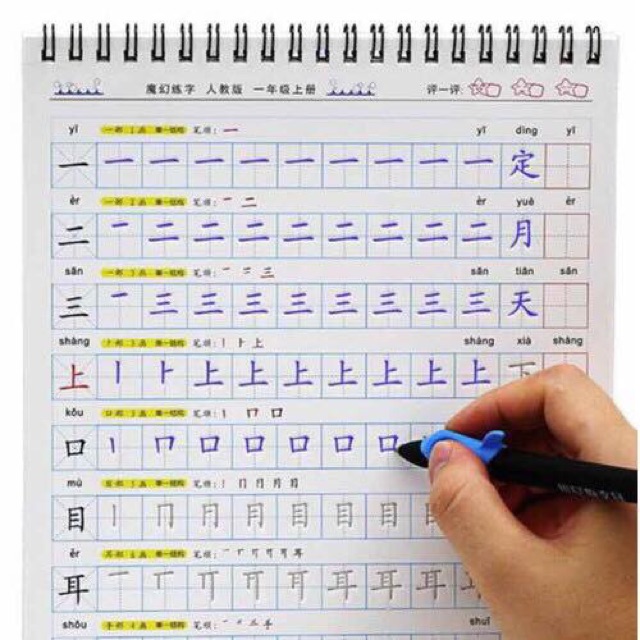 魔幻练字 人教版 一年级上册 评一评:
yī 一部 1画 单一结构 笔顺: 一 yī dìng yī
一 一 一 一 一 一 一 一 一 一 定
èr 一部 2画 单一结构 笔顺: 一 二 èr yuè èr
二 一 二 二 二 二 二 二 二 二 月
sān 一部 3画 单一结构 笔顺: 一 二 三 sān tiān sān
三 一 三 三 三 三 三 三 三 三 天
shàng 卜部 3画 单一结构 笔顺: 丨 卜 上 shàng xià shàng
上 丨 卜 上 上 上 上 上 上 上 下
kǒu 口部 3画 单一结构 笔顺: 丨 冂 口
口 丨 冂 口 口 口 口 口
mù 目部 5画 单一结构 笔顺: 丨 冂 月 月 目
目 丨 冂 月 月 目 目 目
ěr 耳部 6画 单一结构 笔顺:
耳 一 丆 丌 耳 耳 耳 耳
shǒu 手部 4画 单一结构 笔顺: 手 shuǐ